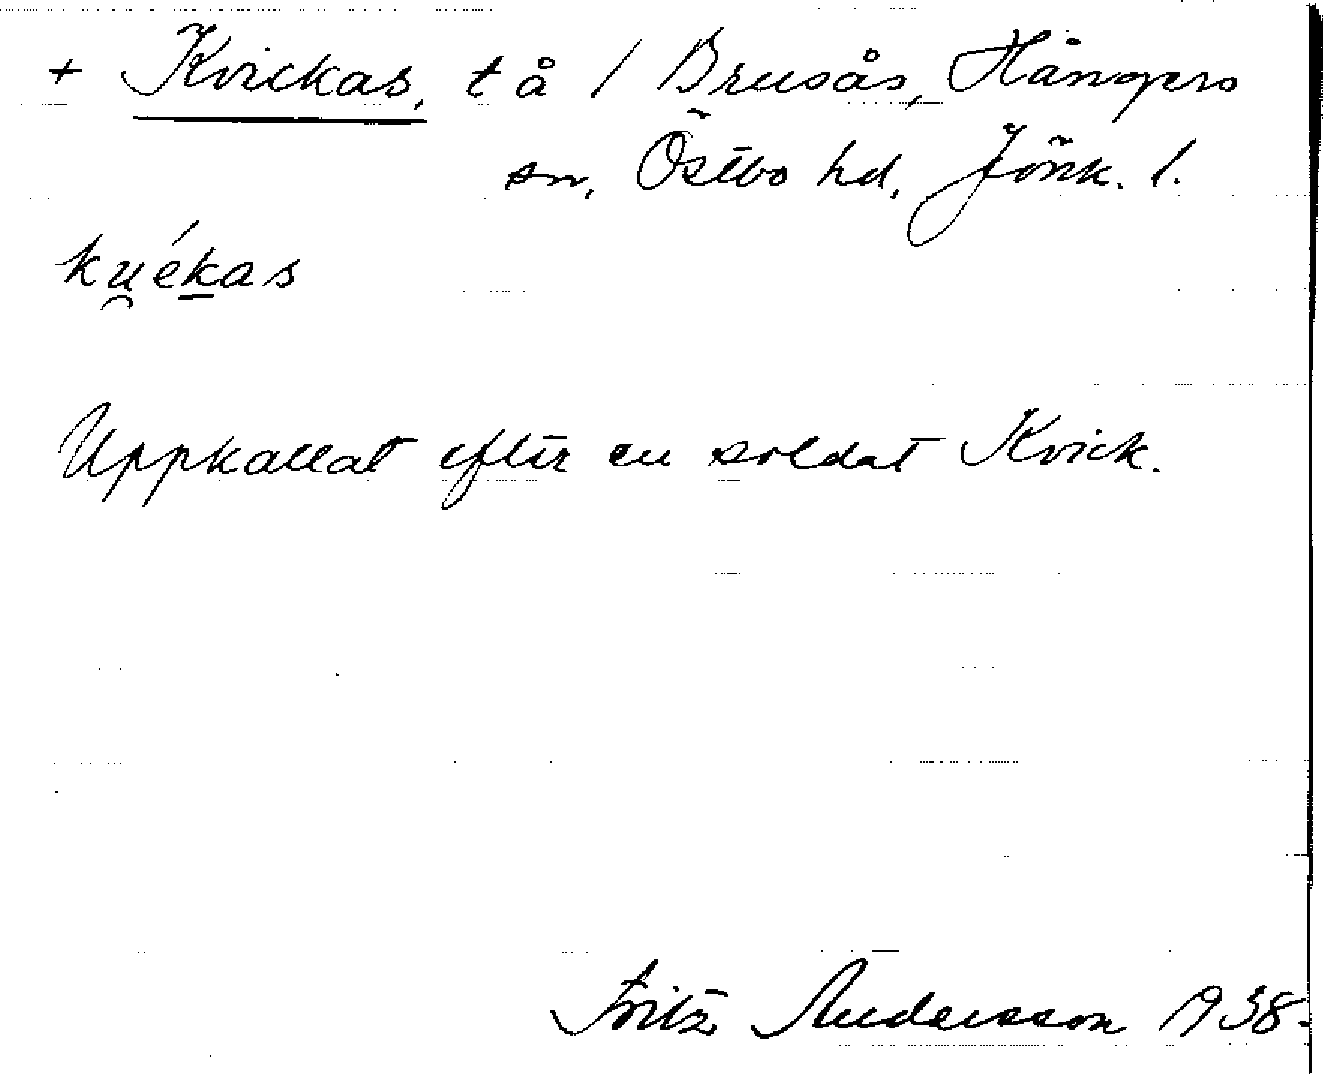 + Kvickas, t å / Brusås, Hångers
sn, Östbo hd, Jönk. l.
ku̯ékas
Uppkallat efter en soldat Kvick.
Fritz Andersson 1938.